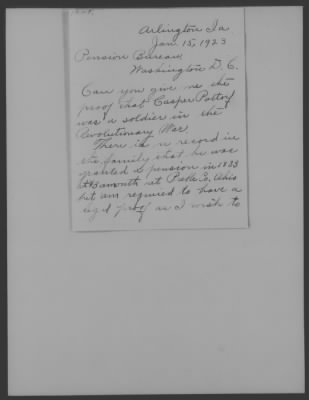 Arlington Ia
Jan. 15, 1923
Pension Bureau,
Washington D. C.
Can you give me the
proof that Casper Potterf
was a soldier in the
Revolutionary War.
There is a record in
the family that he was
granted a pension in 1833
at Preble Co, Ohio
but am required to have a
legal proof as I wish to